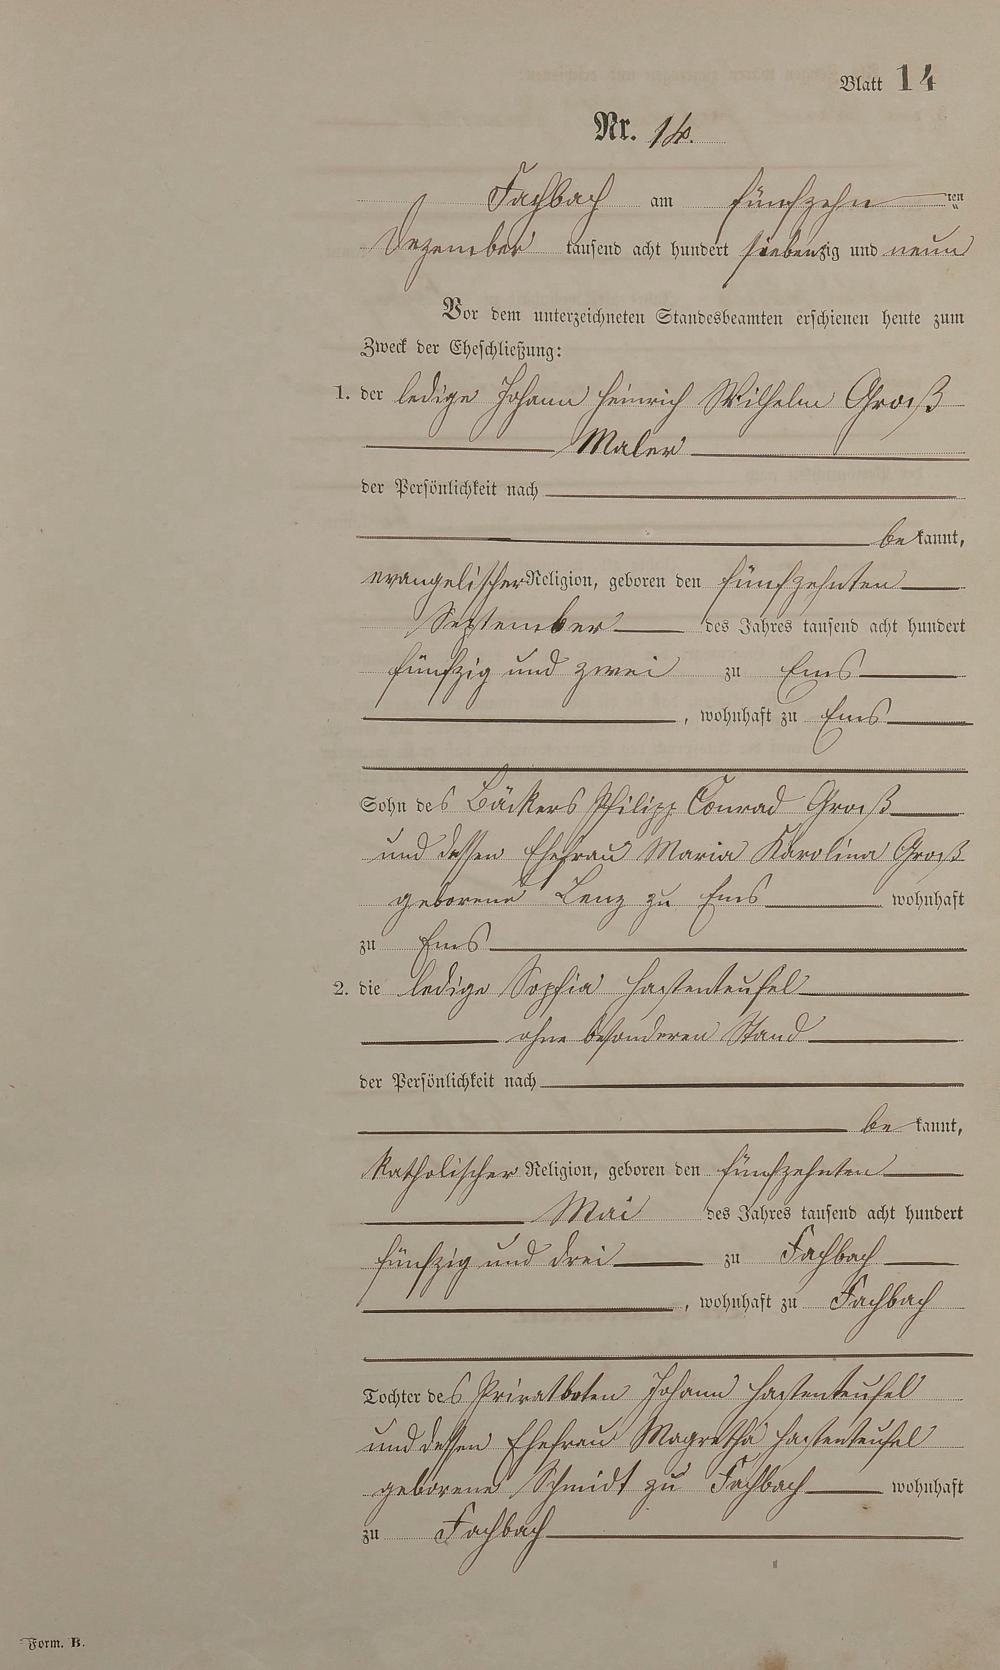 Blatt 14
Nr. 14.
Fachbach am fünfzehn ten
Dezember tausend acht hundert siebenzig und neun
Vor dem unterzeichneten Standesbeamten erschienen heute zum
Zweck der Eheschließung:
1. der ledige Johann Heinrich Wilhelm Groß
Maler
der Persönlichkeit nach
be kannt,
evangelischer Religion, geboren den fünfzehnten
September des Jahres tausend acht hundert
fünfzig und zwei zu Ems
, wohnhaft zu Ems
Sohn des Bäckers Philipp Conrad Groß
und dessen Ehefrau Maria Karolina Groß
geborene Lenz zu Ems wohnhaft
zu Ems
2. die ledige Sophia Hastenteufel
ohne besonderen Stand
der Persönlichkeit nach
be kannt,
katholischer Religion, geboren den fünfzehnten
Mai des Jahres tausend acht hundert
fünfzig und drei zu Fachbach
, wohnhaft zu Fachbach
Tochter des Privatboten Johann Hastenteufel
und dessen Ehefrau Magretha Hastenteufel
geborene Schmidt zu Fachbach wohnhaft
zu Fachbach
Form. B.